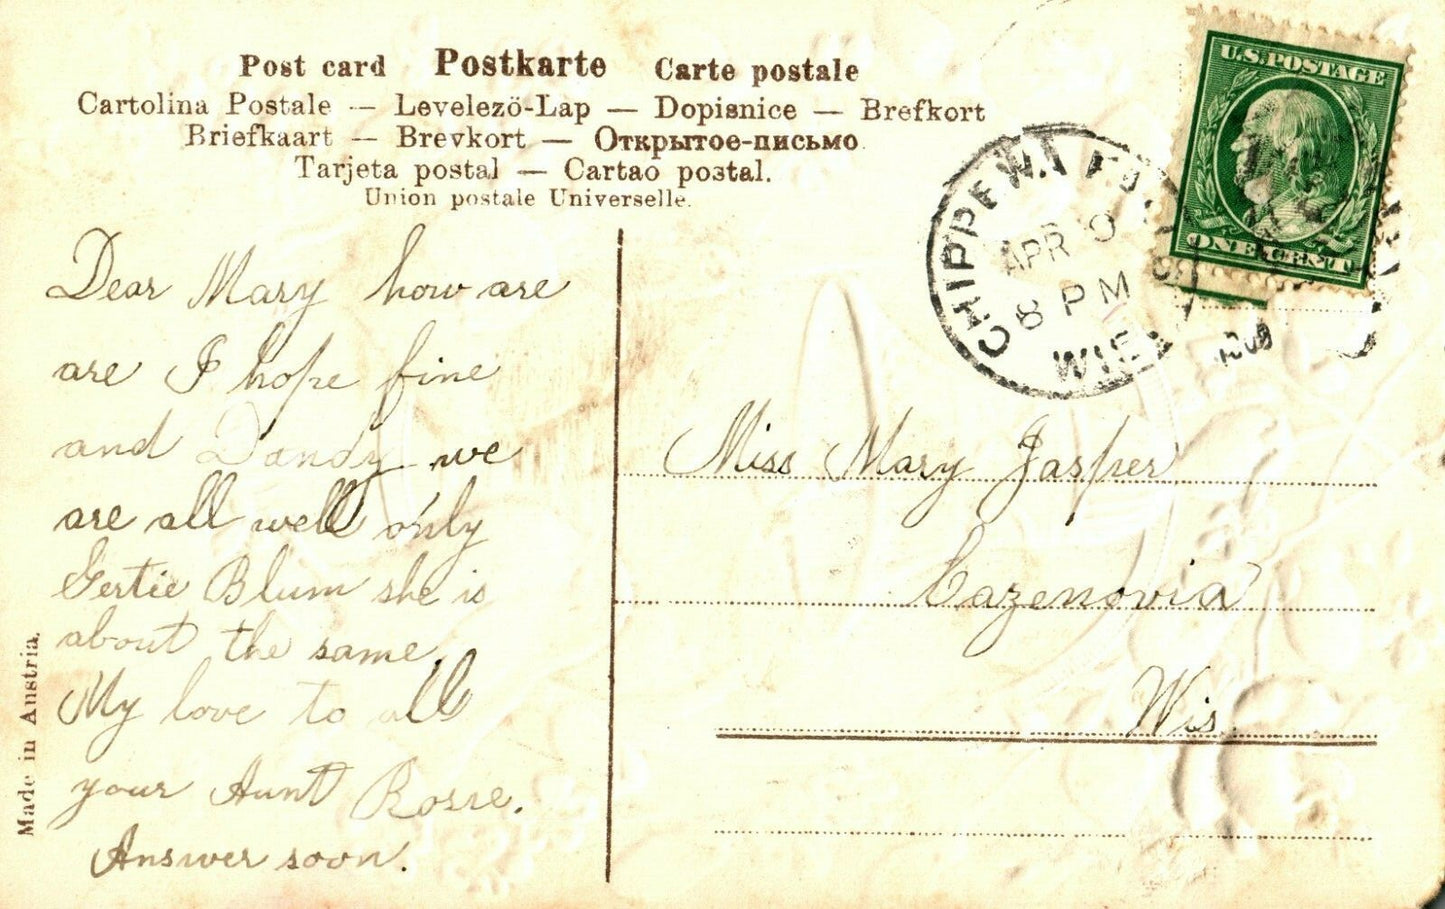 Post card Postkarte Carte postale
Cartolina Postale — Levelező-Lap — Dopisnice — Brefkort
Briefkaart — Brevkort — Открытое-письмо
Tarjeta postal — Cartao postal.
Union postale Universelle.
U.S. POSTAGE
ONE CENT
CHIPPEWA
APR
8 PM
WIS.
Dear Mary how are
are I hope fine
and Dandy we
are all well only
Gertie Blum she is
about the same.
My love to all
your Aunt Rosie.
Answer soon.
Miss Mary Jasper
Cazenovia
Wis.
Made in Austria.